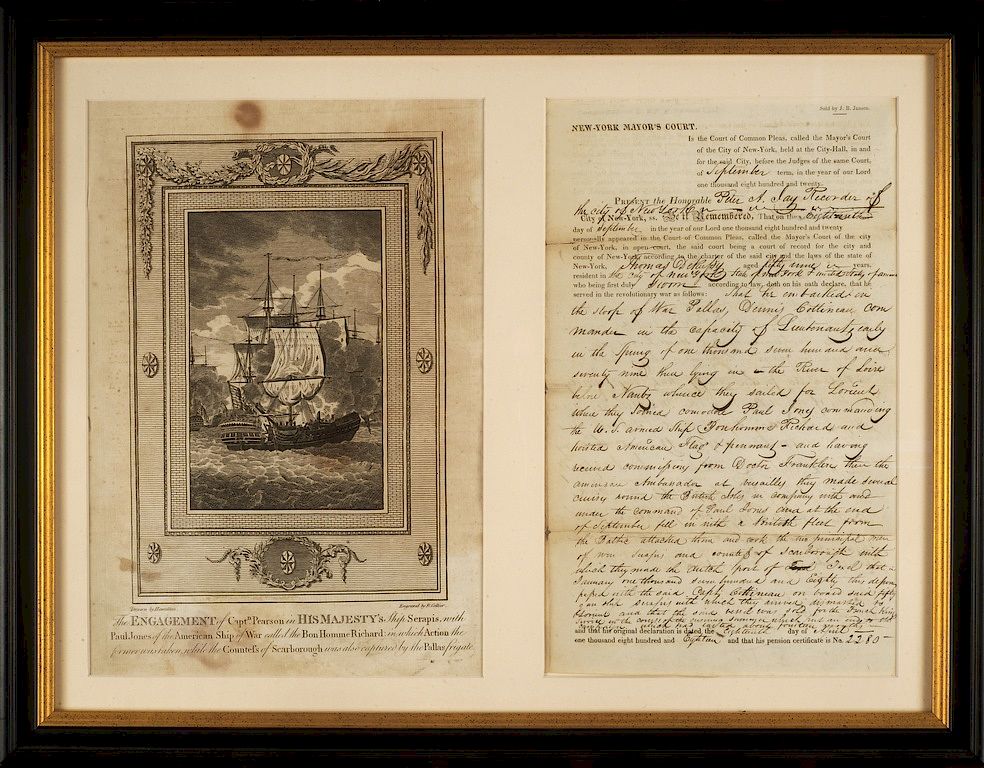 Drawn by Hamilton.
Engraved by R. Collier.
The ENGAGEMENT of Captn. Pearson in HIS MAJESTY's Ship Serapis, with
Paul Jones of the American Ship of War called the Bon Homme Richard: in which Action the
former was taken, while the Countess of Scarborough was also captured by the Pallas frigate.
Sold by J. B. Jansen.
NEW-YORK MAYOR'S COURT.
In the Court of Common Pleas, called the Mayor's Court
of the City of New-York, held at the City-Hall, in and
for the said City, before the Judges of the same Court,
of September term, in the year of our Lord
one thousand eight hundred and twenty
PRESENT the Honorable Peter A. Jay Recorder of
the city of New York
City of New-York, ss. Be it Remembered, That on the Eighteenth
day of September in the year of our Lord one thousand eight hundred and twenty
personally appeared in the Court of Common Pleas, called the Mayor's Court of the city
of New-York, in open court, the said court being a court of record for the city and
county of New-York according to the charter of the said city and the laws of the state of
New-York, Thomas aged fifty years,
resident in the city of New York State of New York & United States of
who being first duly Sworn according to law, doth on his oath declare, that he
served in the revolutionary war as follows: That he embarked in
the sloop of War Pallas, Dennis Cottineau com
mander in the capacity of Lieutenant early
in the Spring of one thousand seven hundred and
seventy nine then lying in the River of Loire
below Nantz whence they sailed for Lorient
where they joined comodore Paul Jones commanding
the U.S. armed Ship Bonhomme Richard and
hoisted American Flag & pennant - and having
received commissions from Doctor Franklin then the
american Ambassador at Versailles they made several
cruises round the British Isles in company with and
under the command of Paul Jones and at the end
of September fell in with a British fleet from
the Baltic attacked them and took the two principal men
of war Serapis and countess of Scarborough with
which they made the dutch port of Texel that in
January one thousand seven hundred and Eighty this
with the said Capt Cottineau on board said
Serapis with which they arrived dismasted
L'Orient and that the said vessel was sold for the French King
and that his original declaration is dated the Eighteenth day of April
one thousand eight hundred and Eighteen and that his pension certificate is No. 2280